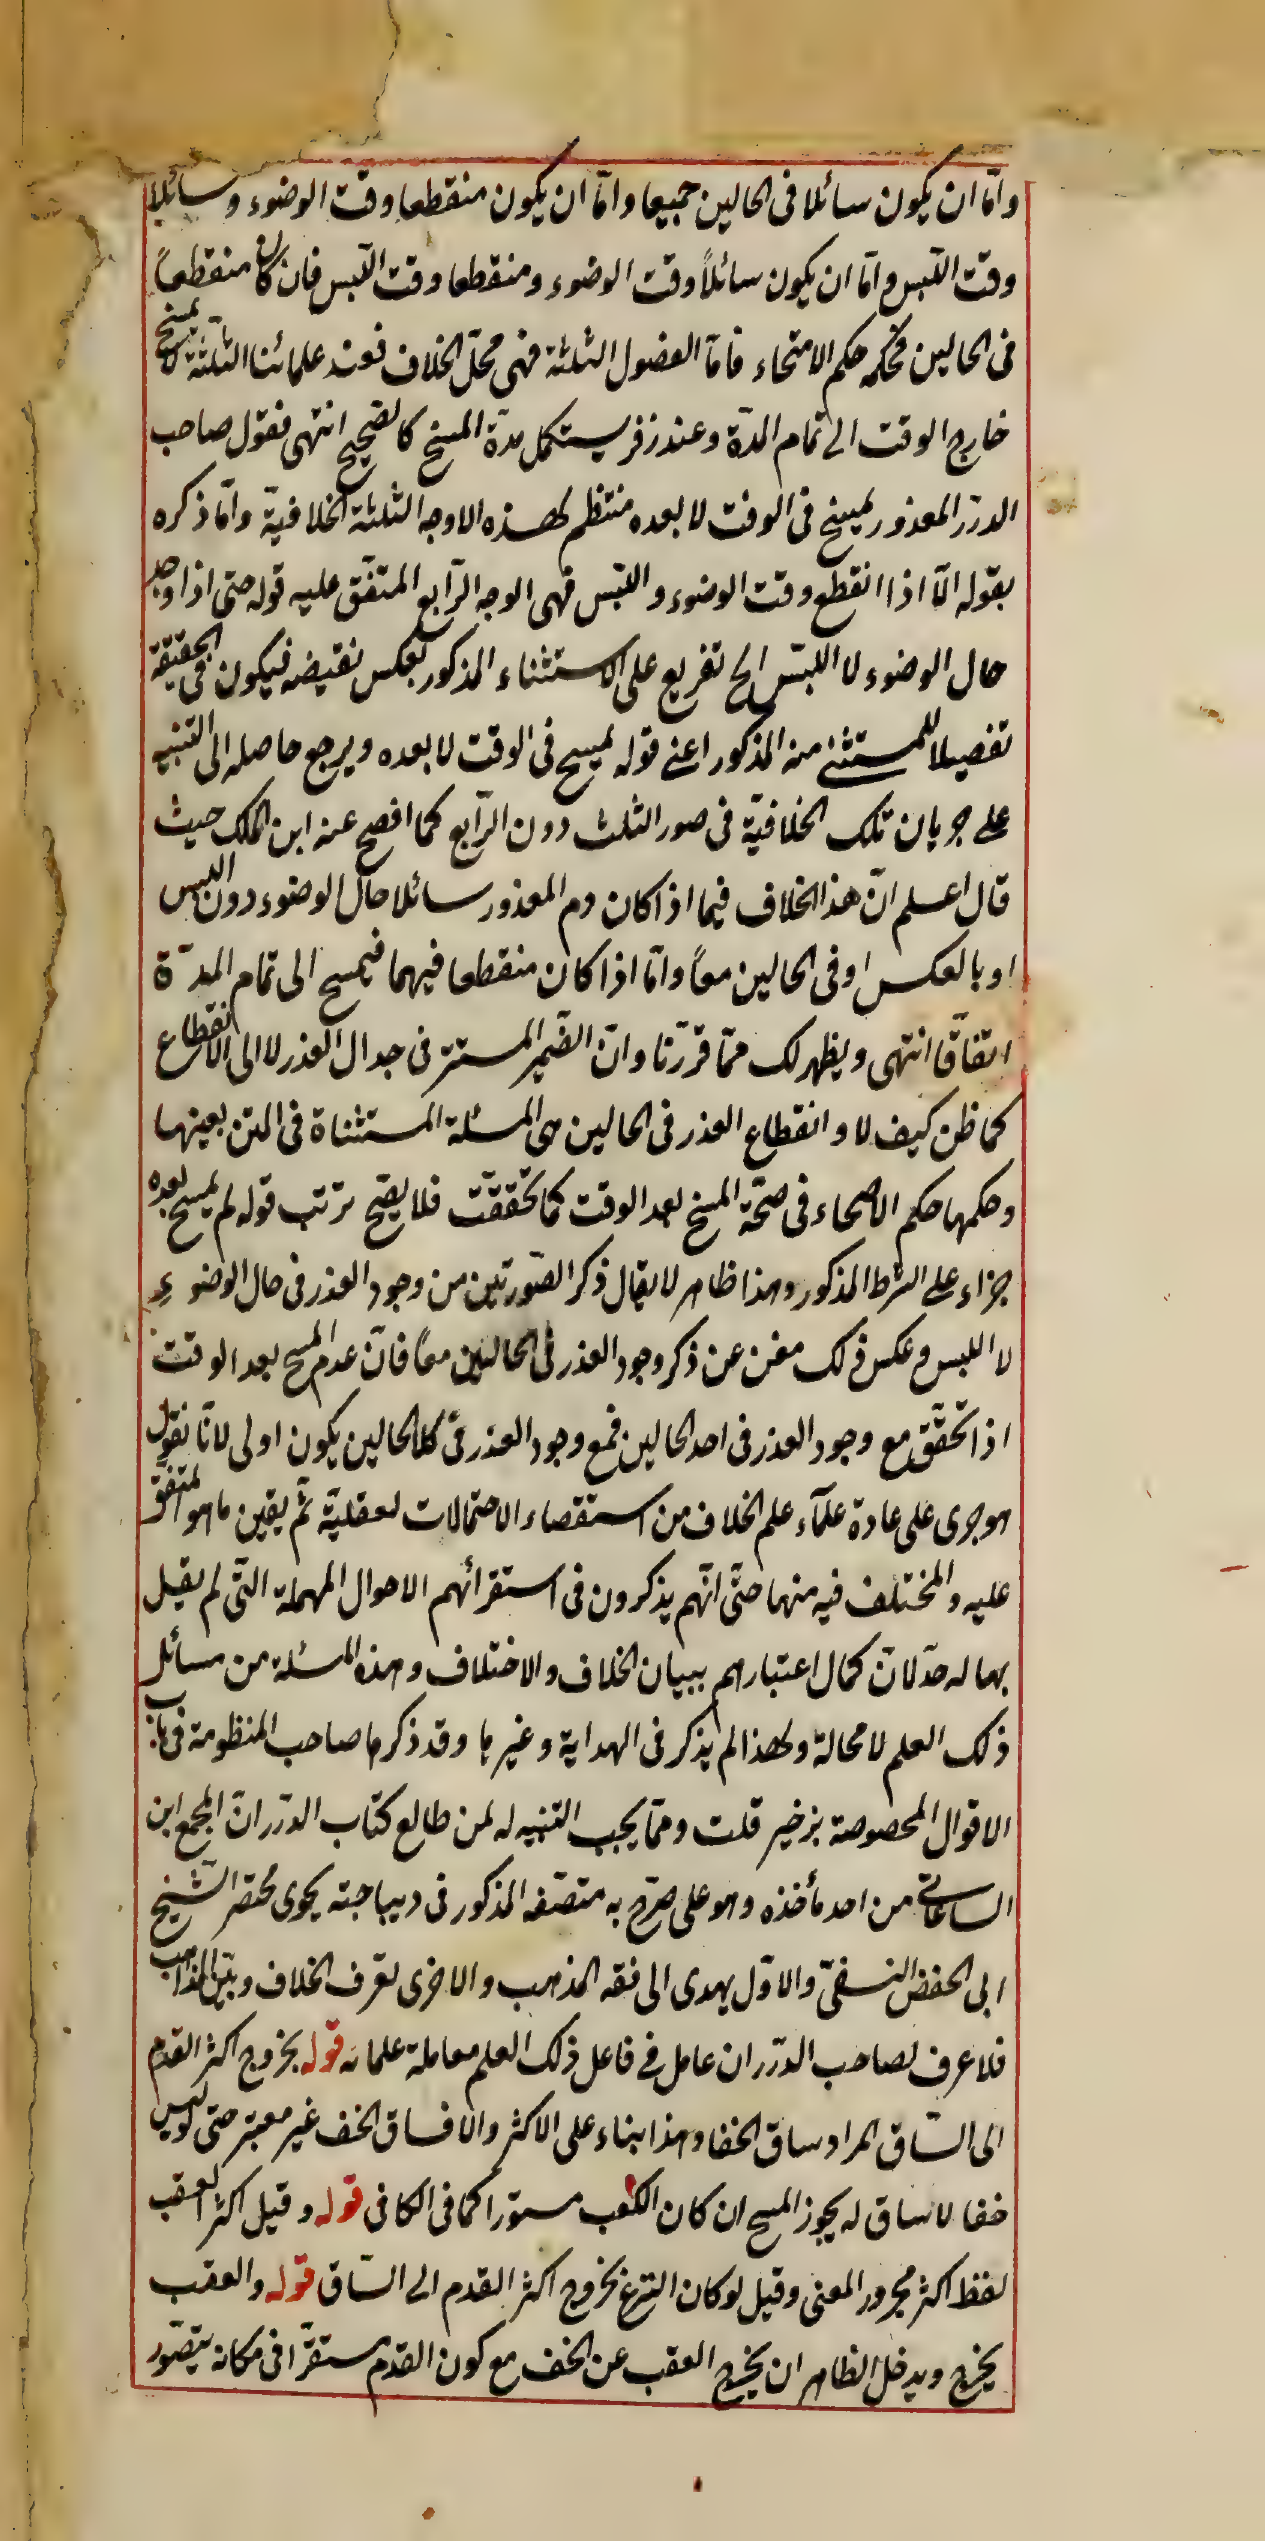 وامّا ان يكون سائلا فى الحالين جميعا وامّا ان يكون منقطعا وقت الوضوء وسائلا
وقت اللّبس وامّا ان يكون سائلاً وقت الوضوء ومنقطعا وقت اللّبس فان كان منقطعاً
فى الحالين فحكمه حكم الاصحاء فامّا الفصول الثلثة فهى محلّ الخلاف فعند علمائنا الثلثة لا يمسح
خارج الوقت الى تمام المدّة وعند زفر يستكمل مدّة المسح كالصّحيح انتهى فقول صاحب
الدرر المعذور يمسح فى الوقت لا بعده منتظم لهذه الاوجه الثلثة الخلافيّة وامّا ذكره
بقوله الّا اذا انقطع وقت الوضوء واللبّس فهى الوجه الرّابع المتّفق عليه قوله حتى اذا وجد
حال الوضوء لا اللبّس الخ تفريع على الاستثناء المذكور بعكس نقيضه فيكون فى الحقيقة
تفصيلا للمستثنى منه المذكور اعنى قوله يمسح فى الوقت لا بعده ويرجع حاصله الى التنبيه
على جريان تلك الخلافيّة فى صور الثلث دون الرّابع كما افصح عنه ابن الملك حيث
قال اعلم انّ هذا الخلاف فيما اذا كان دم المعذور سائلا حال الوضوء دون اللبس
او بالعكس او فى الحالين معاً وامّا اذا كان منقطعا فيهما فيمسح الى تمام المدّة
اتفاقّا انتهى ويظهر لك ممّا قررّنا وانّ الضّمير المستتر فى جدال العذر لا الى الانقطاع
كما ظن كيف لا وانقطاع العذر فى الحالين هى المسئلة المستثناة فى المتن بعينها
وحكمها حكم الاصحاء فى صحّة المسح بعد الوقت كما تحققّت فلا يصّح ترتب قوله لم يمسح بعده
جزاء على الشرط المذكور وهذا ظاهر لا يقال ذكر الصّورتين من وجود العذر فى حال الوضوءِ
لا اللبس وعكس ذلك مغن عن ذكر وجود العذر فى الحالين معاً فانّ عدم المسح بعد الوقت
اذا تحقّق مع وجود العذر فى احد الحالين فمع وجود العذر فى كلا الحالين يكون اولى لانّا نقول
هو جرى على عادة علمآء علم الخلاف من استقصاء الاحتمالات لعقليّة ثمّ يقين ما هو المتفق
عليه والمختلف فيه منها حتّى انّهم يذكرون فى استقرائهم الاحوال المهملة التّى لم يقبل
بها له حدّ لانّ كمال اعتبارهم ببيان الخلاف والاختلاف وهذه المسئلة من مسائل
ذلك العلم لا محالة ولهذا لم يذكر فى الهداية وغيرها وقد ذكرها صاحب المنظومة فى باب
الاقوال المحصوصة بزخير قلت وممّا يجب التنبيه له لمن طالع كتاب الدرر انّ المجمع ابن
الساعاتى من احد مأخذه وهو على صرّح به متصنّفه المذكور فى ديباجته يحوى مختصر الشّيخ
ابى الحفض النسفىّ والاوّل يهدى الى فقه المذهب والاخرى لعرّف الخلاف وبيّن المذاهب
فلا عرف لصاحب الدرّر ان عامل فى فاعل ذلك العلم معاملة علمائه قوله بخروج اكثر القدم
الى السّاق المراد ساق الخفا وهذا بناء على الاكثر والا فساق الخف غير معتبر حتى لو لبس
خفا لا ساق له يجوز المسح ان كان الكعب مستورا كما فى الكافى قوله وقيل اكثر العقب
لفظ اكثر مجرور المعنى وقيل لو كان النزع بخروج اكثر القدم الى السّاق قوله والعقب
يخرج ويدخل الظاهر ان يخرج العقب عن الخف مع كون القدم مستقرّا فى مكانه يتصّور